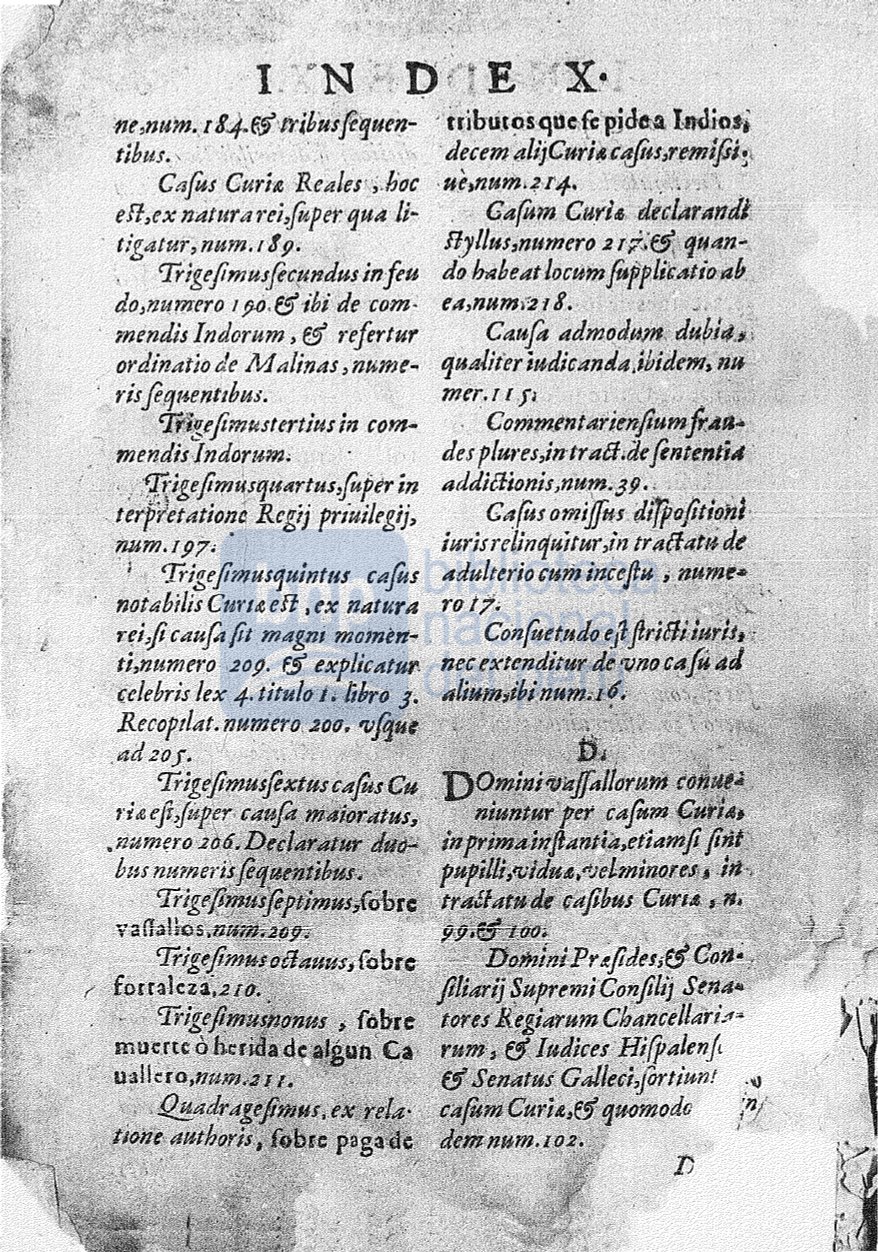 INDEX.
ne, num. 184. & tribus sequen-
tibus.
Casus Curiæ Reales, hoc
est, ex natura rei, super qua li-
tigatur, num. 189.
Trigesimussecundus in feu
do, numero 190. & ibi de com-
mendis Indorum, & refertur
ordinatio de Malinas, nume-
ris sequentibus.
Trigesimustertius in com-
mendis Indorum.
Trigesimusquartus, super in
terpretatione Regij priuilegij,
num. 197.
Trigesimusquintus casus
notabilis Curiæ est, ex natura
rei, si causa sit magni momen-
ti, numero 209. & explicatur
celebris lex 4. titulo 1. libro 3.
Recopilat. numero 200. vsque
ad 205.
Trigesimussextus casus Cu
riæ est, super causa maioratus,
numero 206. Declaratur duo-
bus numeris sequentibus.
Trigesimusseptimus, sobre
vassallos, num. 209.
Trigesimusoctauus, sobre
fortaleza, 210.
Trigesimusnonus, sobre
muerte ò herida de algun Ca
uallero, num. 211.
Quadragesimus, ex rela-
tione authoris, sobre paga de
tributos que se pide a Indios,
decem alij Curiæ casus, remissi-
uè, num. 214.
Casum Curiæ declarandi
styllus, numero 217. & quan-
do habeat locum supplicatio ab
ea, num. 218.
Causa admodum dubia,
qualiter iudicanda, ibidem, nu
mer. 115.
Commentariensium frau-
des plures, in tract. de sententia
addictionis, num. 39.
Casus omissus dispositioni
iuris relinquitur, in tractatu de
adulterio cum incestu, nume-
ro 17.
Consuetudo est stricti iuris,
nec extenditur de vno casu ad
alium, ibi num. 16.
D.
DOmini vassallorum conue-
niuntur per casum Curiæ,
in prima instantia, etiamsi sint
pupilli, viduæ, vel minores, in
tractatu de casibus Curiæ, n.
99. & 100.
Domini Præsides, & Con-
siliarij Supremi Consilij Sena-
tores Regiarum Chancellaria-
rum, & Iudices Hispalens
& Senatus Galleci, sortiunt
casum Curiæ, & quomodo
dem num. 102.
D
bnp
biblioteca
nacional
del perú